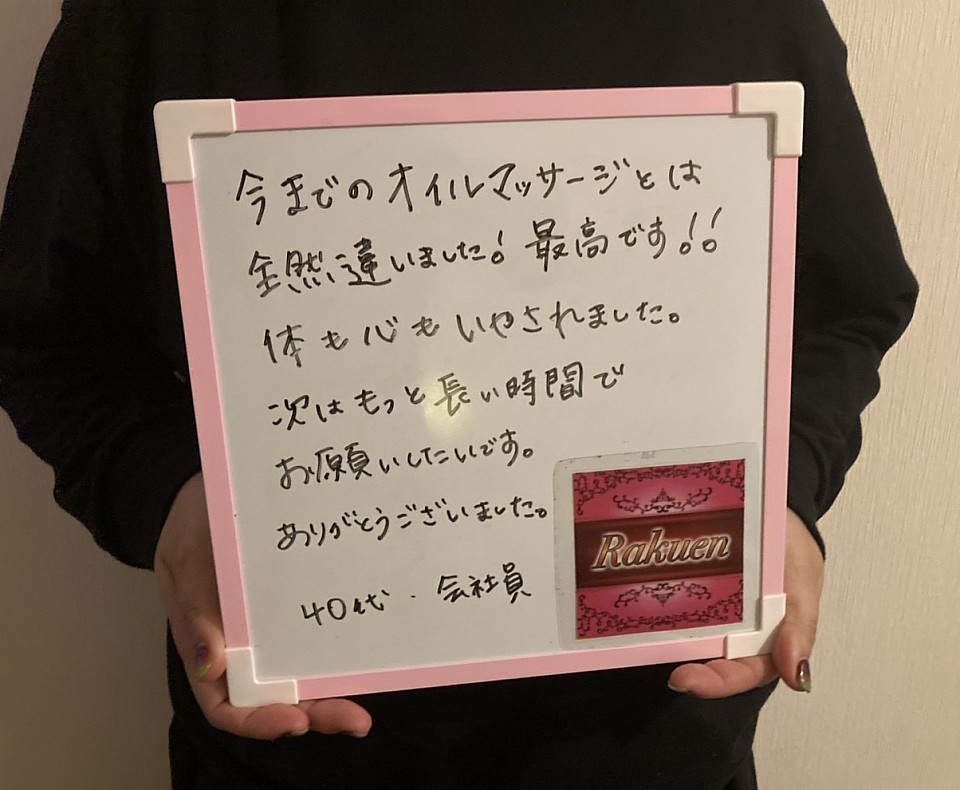 今までのオイルマッサージとは
全然違いました!最高です!!
体も心もいやされました。
次はもっと長い時間で
お願いしたいです。
ありがとうございました。
40代・会社員
Rakuen